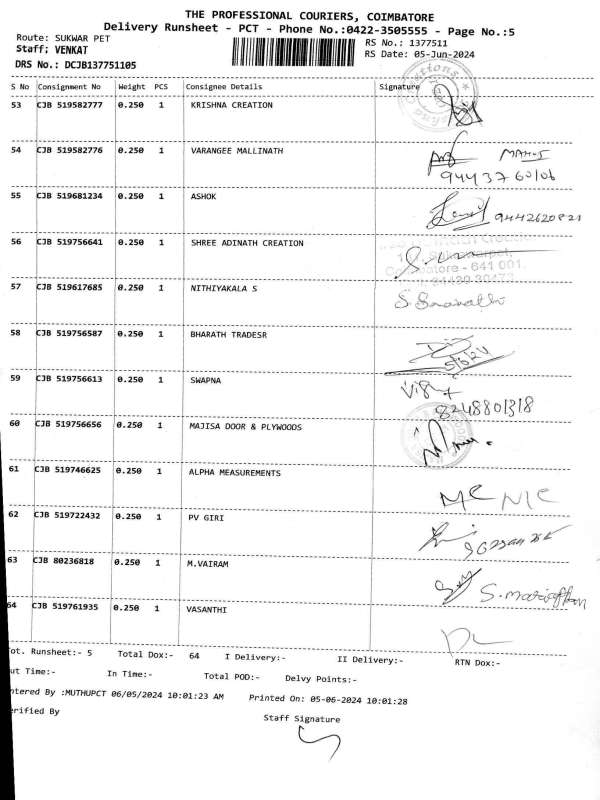 THE PROFESSIONAL COURIERS, COIMBATORE
Delivery Runsheet - PCT - Phone No.:0422-3505555 - Page No.:5
Route: SUKWAR PET
RS No.: 1377511
Staff: VENKAT
RS Date: 05-Jun-2024
DRS No.: DCJB137751105
S No Consignment No Weight PCS Consignee Details Signature
53 CJB 519582777 0.250 1 KRISHNA CREATION
54 CJB 519582776 0.250 1 VARANGEE MALLINATH
94437 60106
55 CJB 519681234 0.250 1 ASHOK
9442620821
56 CJB 519756641 0.250 1 SHREE ADINATH CREATION
641 001.
57 CJB 519617685 0.250 1 NITHIYAKALA S
58 CJB 519756587 0.250 1 BHARATH TRADESR
5/6/24
59 CJB 519756613 0.250 1 SWAPNA
8248801318
60 CJB 519756656 0.250 1 MAJISA DOOR & PLYWOODS
61 CJB 519746625 0.250 1 ALPHA MEASUREMENTS
62 CJB 519722432 0.250 1 PV GIRI
63 CJB 80236818 0.250 1 M.VAIRAM
64 CJB 519761935 0.250 1 VASANTHI
ot. Runsheet:- 5 Total Dox:- 64 I Delivery:- II Delivery:- RTN Dox:-
ut Time:- In Time:- Total POD:- Delvy Points:-
ntered By :MUTHUPCT 06/05/2024 10:01:23 AM Printed On: 05-06-2024 10:01:28
erified By
Staff Signature